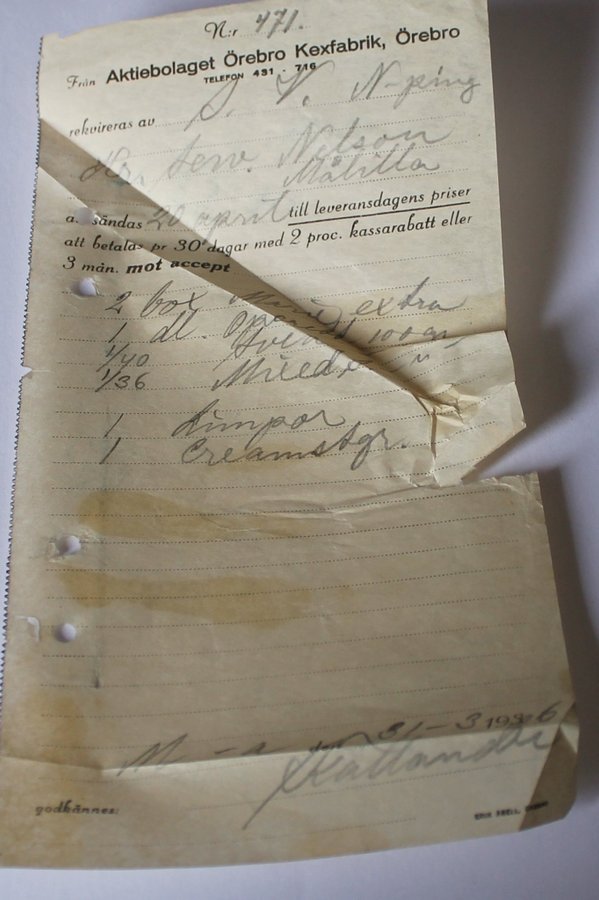 N:r 471.
Från Aktiebolaget Örebro Kexfabrik, Örebro
TELEFON 431 - 716
rekvireras av S. V. N-ping
Nilson
Målilla
att sändas 20 april till leveransdagens priser
att betalas pr 30 dagar med 2 proc. kassarabatt eller
3 mån. mot accept
2 box Marie extra
1 dl.
1/40 100 gr
1/36 Mixed "
1 Limpor
1 Creamstgr.
M - a den 31 - 3 1936
godkännes: